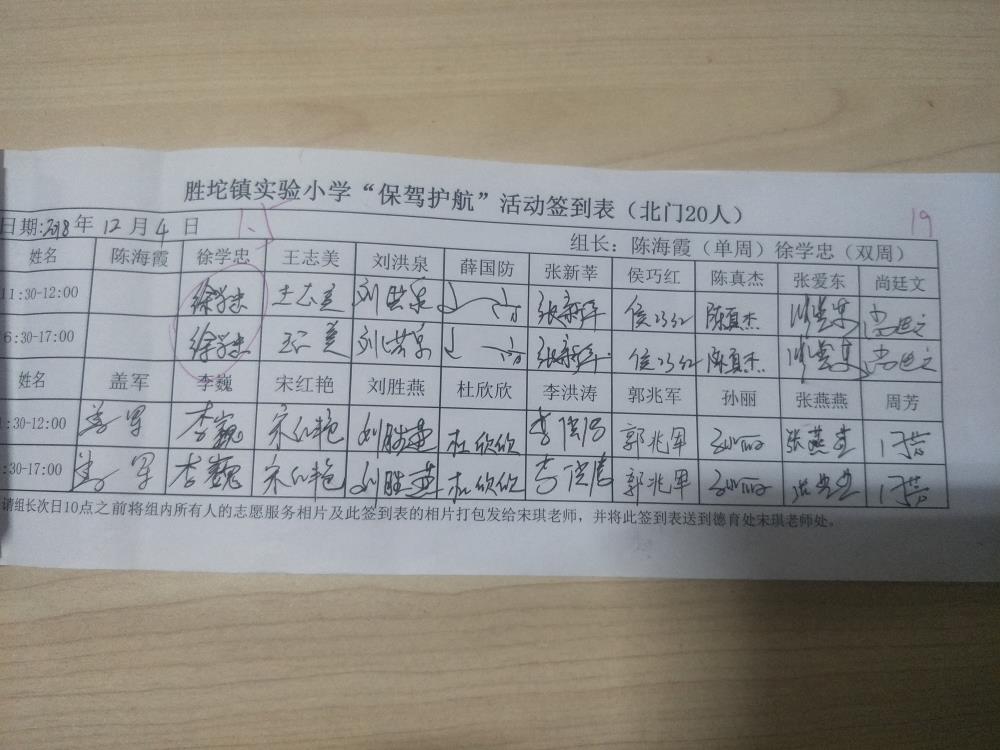 胜坨镇实验小学“保驾护航”活动签到表（北门20人）
19
日期:2018年 12月 4日
1.5
组长：陈海霞（单周）徐学忠（双周）
姓名 陈海霞 徐学忠 王志美 刘洪泉 薛国防 张新莘 侯巧红 陈真杰 张爱东 尚廷文
11:30-12:00 徐学忠 王志美 刘洪泉 张新莘 侯巧红 陈真杰 尚廷文
6:30-17:00 徐学忠 王志美 刘洪泉 张新莘 侯巧红 陈真杰 尚廷文
姓名 盖军 李巍 宋红艳 刘胜燕 杜欣欣 李洪涛 郭兆军 孙丽 张燕燕 周芳
:30-12:00 盖军 李巍 宋红艳 刘胜燕 杜欣欣 李洪涛 郭兆军 孙丽 张燕燕 周芳
:30-17:00 盖军 李巍 宋红艳 刘胜燕 杜欣欣 李洪涛 郭兆军 孙丽 张燕燕 周芳
请组长次日10点之前将组内所有人的志愿服务相片及此签到表的相片打包发给宋琪老师，并将此签到表送到德育处宋琪老师处。